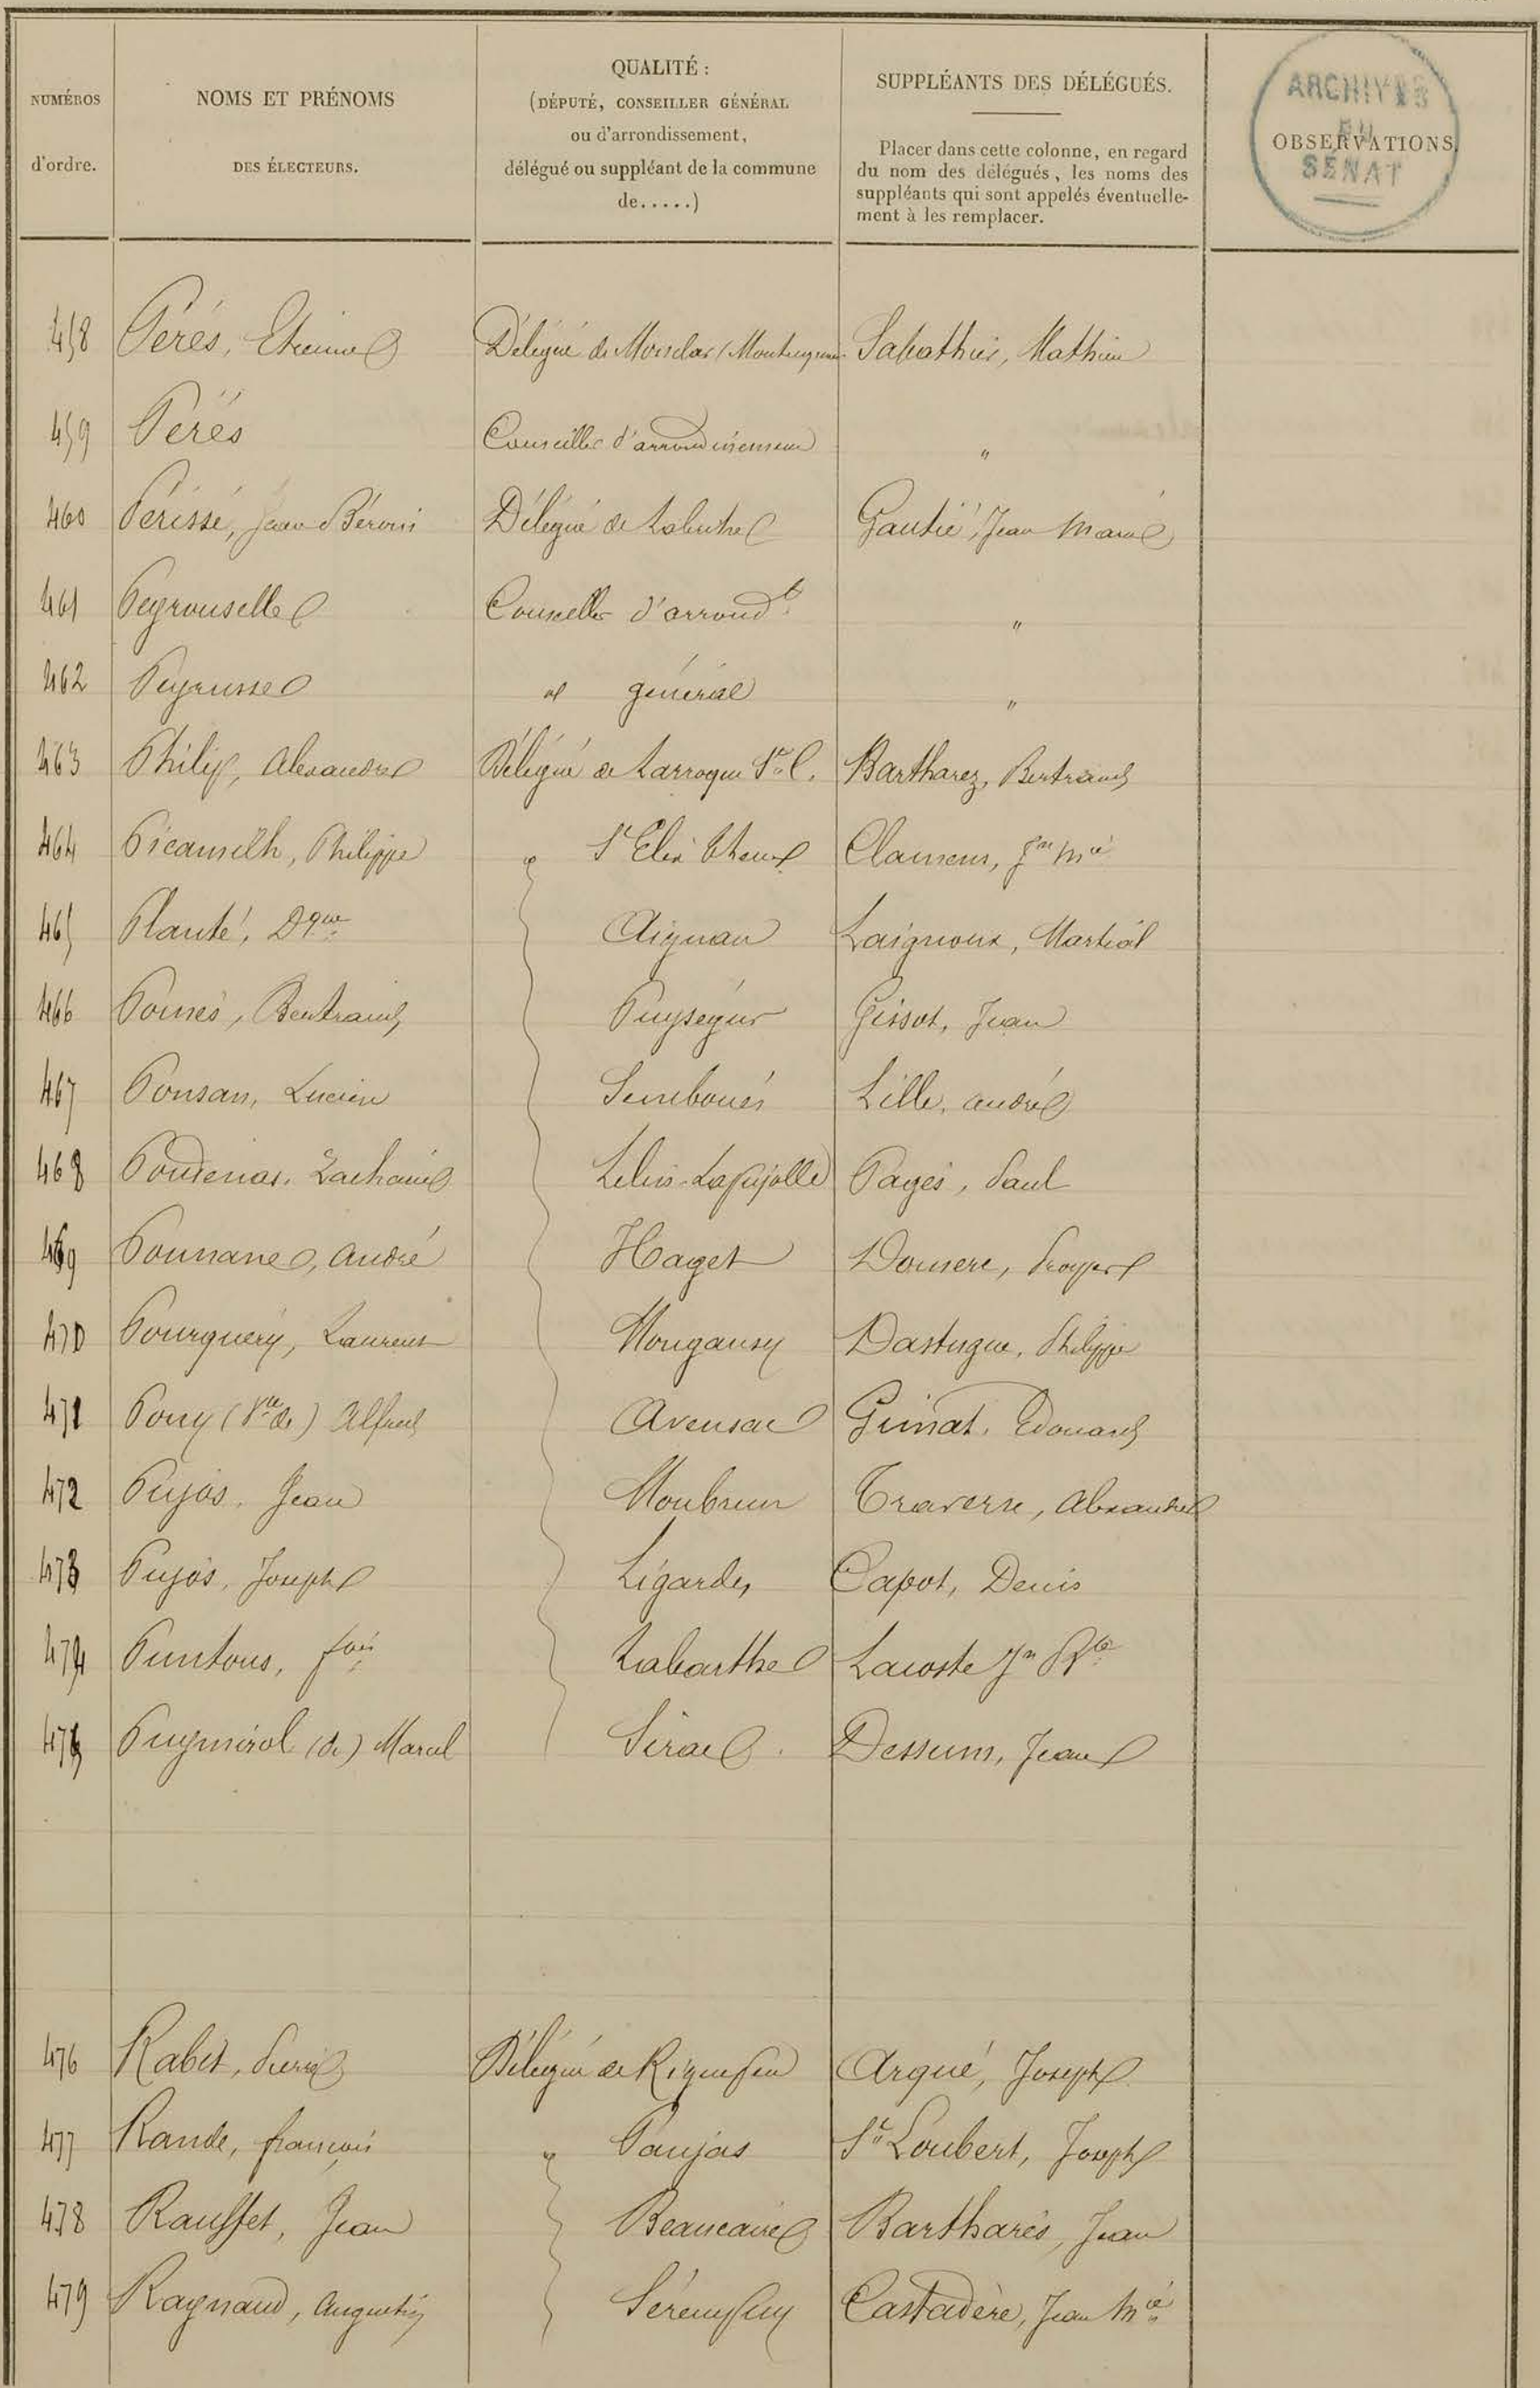 NUMÉROS
d'ordre.
NOMS ET PRÉNOMS
DES ÉLECTEURS.
QUALITÉ :
(DÉPUTÉ, CONSEILLER GÉNÉRAL
ou d'arrondissement,
délégué ou suppléant de la commune
de.....)
SUPPLÉANTS DES DÉLÉGUÉS.
Placer dans cette colonne, en regard
du nom des délégués, les noms des
suppléants qui sont appelés éventuelle-
ment à les remplacer.
OBSERVATIONS.
ARCHIVES
DU
SÉNAT
458 Pérés, Etienne Délégué de Sabathier, Mathieu
459 Pérés Conseiller d'arrondissement "
460 Périssé, Jean Délégué de Gautié, Jean Marie
461 Peyrouselle Conseiller d'arrondt "
462 Peyrusse d général "
463 Philip, Alexandre Délégué de Larroque St. C. Bartharez, Bertrand
464 Picamilh, Philippe d St Elix Theux Clamens, Jn Mie
465 Planté, Dque Aignan Laignoux, Martial
466 Pomés, Bertrand Puységur Gissot, Jean
467 Ponsan, Lucien Semboués Lille, André
468 Poudenas, Zacharie Lelin-Lapujolle Pagés, Paul
469 Poumane, André Haget Doumere, Prosper
470 Pourquery, Laurent Mongausy Dastugue, Philippe
471 Pouy (Vte de) Alfred Avensac Guinat, Edouard
472 Pujos, Jean Monbrun Traverse, Alexandre
473 Pujos, Joseph Ligardes Capot, Denis
474 Puntous, fois Labarthe Lacoste Jn Bte
475 Puymirol (de) Marcel Sirac Dessum, Jean
476 Rabet, Pierre Délégué de Riguepeu Arqué, Joseph
477 Rande, françois d Panjas St Loubert, Joseph
478 Rauffet, Jean Beaucaire Bartharés, Jean
479 Raynaud, Augustin Sérempuy Castadère, Jean Mie